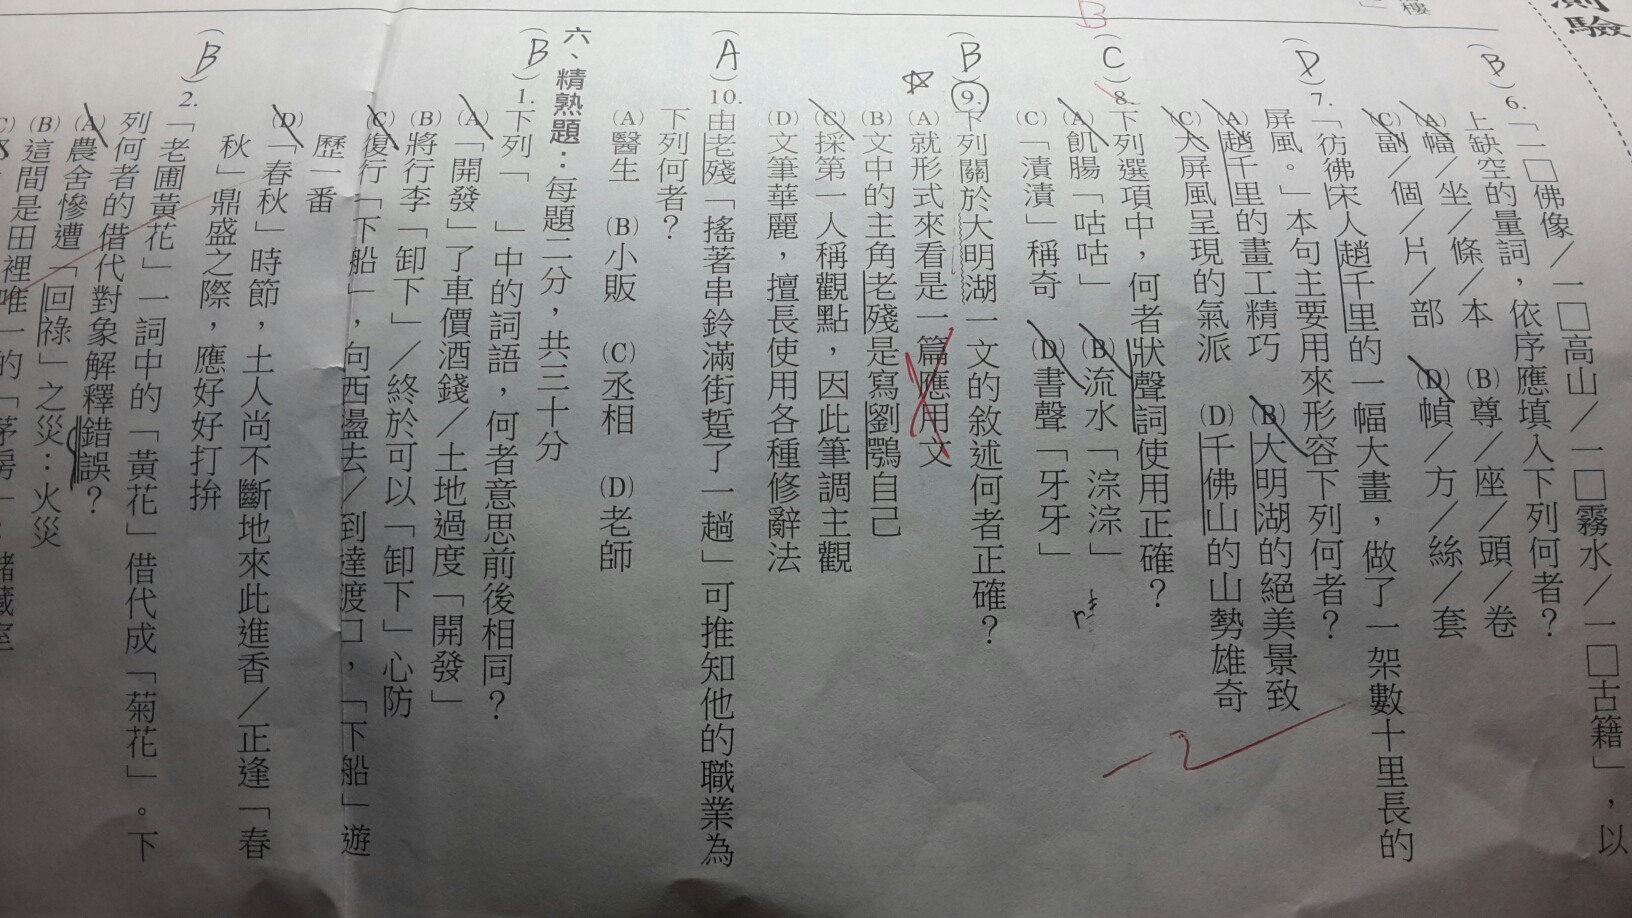 測驗
樓
」
B
(B)6.「一□佛像／一□高山／一□霧水／一□古籍」，以
上缺空的量詞，依序應填入下列何者？
(A)幅／坐／條／本　(B)尊／座／頭／卷
(C)副／個／片／部　(D)幀／方／絲／套
(D)7.「彷彿宋人趙千里的一幅大畫，做了一架數十里長的
屏風。」本句主要用來形容下列何者？
(A)趙千里的畫工精巧　(B)大明湖的絕美景致
(C)大屏風呈現的氣派　(D)千佛山的山勢雄奇
(C)8.下列選項中，何者狀聲詞使用正確？
(A)飢腸「咕咕」　(B)流水「淙淙」
(C)「漬漬」稱奇　(D)書聲「牙牙」
－2
(B)9.下列關於大明湖一文的敘述何者正確？
(A)就形式來看是一篇應用文
(B)文中的主角老殘是寫劉鶚自己
(C)採第一人稱觀點，因此筆調主觀
(D)文筆華麗，擅長使用各種修辭法
(A)10.由老殘「搖著串鈴滿街踅了一趟」可推知他的職業為
下列何者？
(A)醫生　(B)小販　(C)丞相　(D)老師
六、精熟題：每題二分，共三十分
(B)1.下列「　」中的詞語，何者意思前後相同？
(A)「開發」了車價酒錢／土地過度「開發」
(B)將行李「卸下」／終於可以「卸下」心防
(C)復行「下船」，向西盪去／到達渡口，「下船」遊
歷一番
(D)「春秋」時節，土人尚不斷地來此進香／正逢「春
秋」鼎盛之際，應好好打拚
(B)2.「老圃黃花」一詞中的「黃花」借代成「菊花」。下
列何者的借代對象解釋錯誤？
(A)農舍慘遭「回祿」之災：火災
(B)這間是田裡唯一的「茅房」：儲藏室